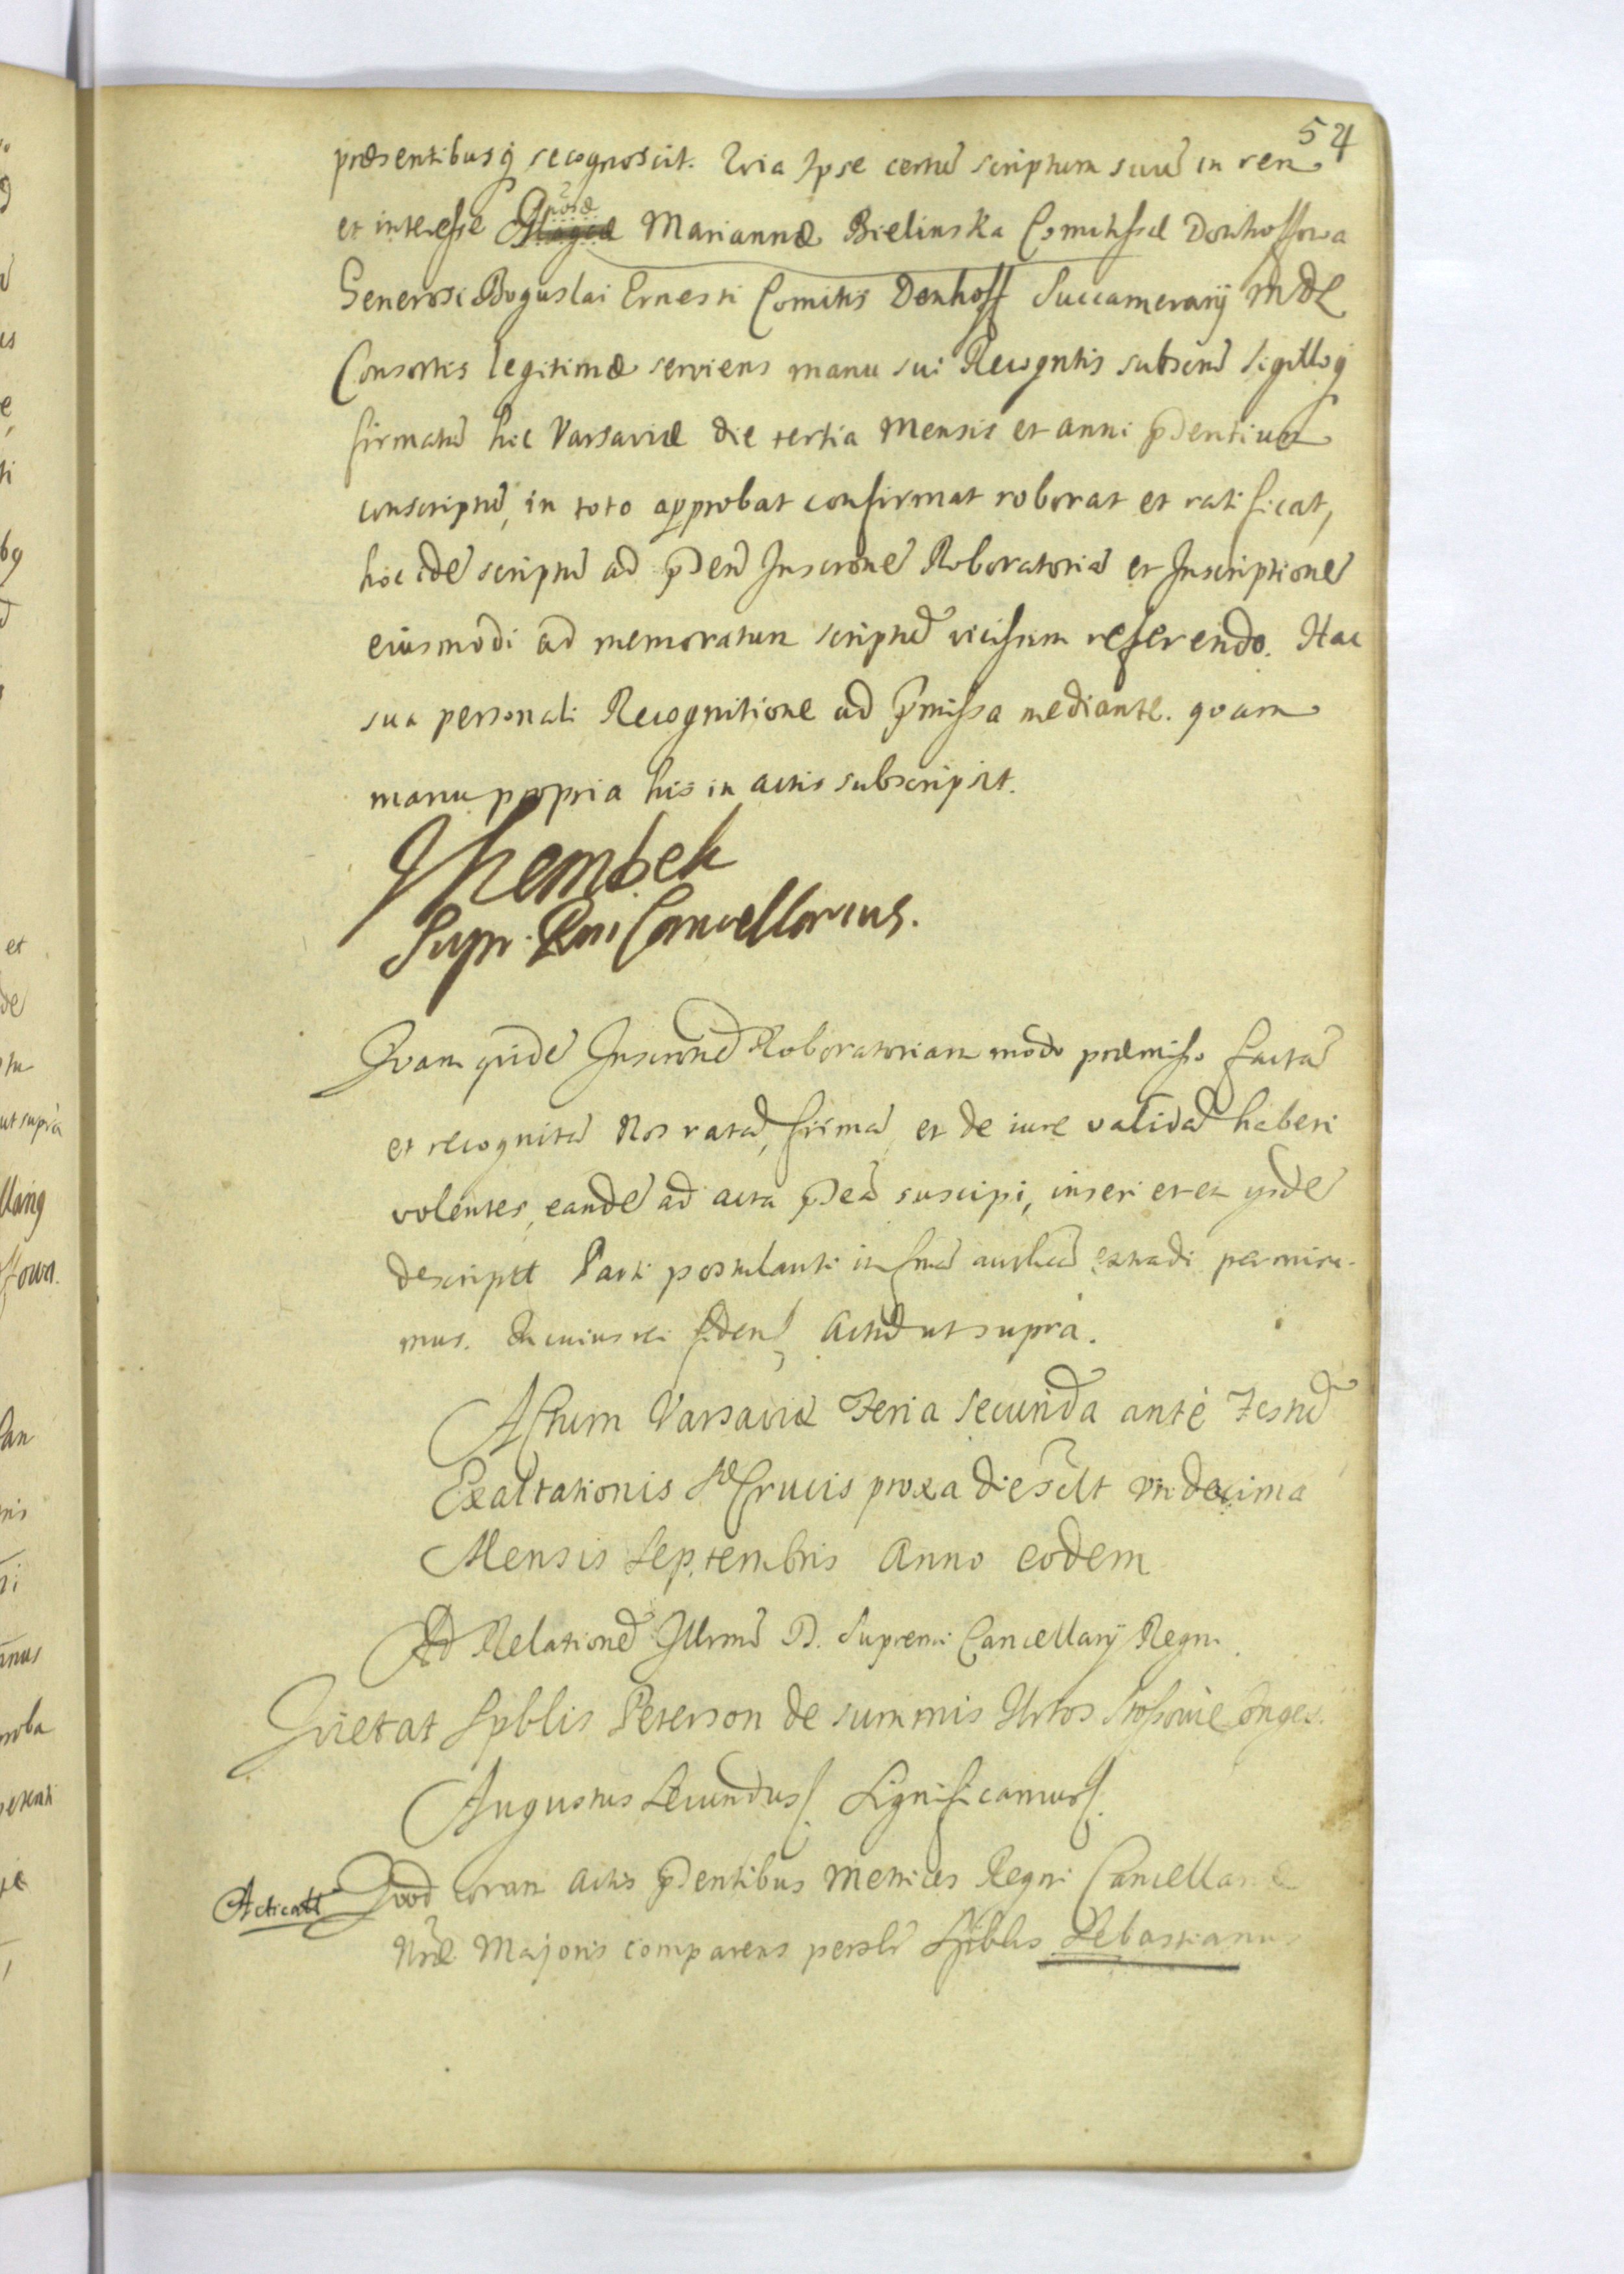 54
præsentibusq recognoscit. Qvia Ipse certũ scriptum suũ in rem
et interesse Gnosæ Mariannæ Bielinska Comitissæ Dönhoffowa
Generosi Boguslai Ernesti Comitis Denhoff Succamerarij MDL
Consortis legitimæ serviens manu sui Recogntis subscrũ sigilloq
firmatũ hic Varsaviæ die tertia Mensis et anni pñtium
conscriptũ, in toto approbat confirmat roborat et ratificat,
hoc idẽ scriptũ ad pñtẽ Inscronẽ Roboratoriã et Inscriptionẽ
eiusmodi ad memoratum scriptũ vicissim referendo. Hac
sua personali Recognitione ad pmissa mediante. qvam
manu propria his in actis subscripsit.
JSzembek
Supr. Rni Cancellarius.
Qvam qvidẽ Inscronẽ Roboratoriam modo præmisso factã
et recognitã Nos ratã, firmã et de iure validã haberi
volentes, eandẽ ad acta pñtia suscipi, inseri et ex ijsdẽ
descriptt Parti postulanti in fmã authcã extradi permisi-
mus. In cuius rei fidem/ Actũ ut supra.
Actum Varsaviæ Feria Secunda ante Festũ
Exaltationis Stæ Crucis proxa die scilt Vndecima
Mensis Septembris Anno eodem
Ad Relationẽ Illrmi D. Supremi Cancellarij Regni
Qvietat Spblis Peterson de summis
Augustus Secundus/. Significamus/.
Acticatt Qvod coram Actis pñtibus Metrices Regni Cancellariæ
Nræ Majoris comparens persolr Spblis Sebastianus